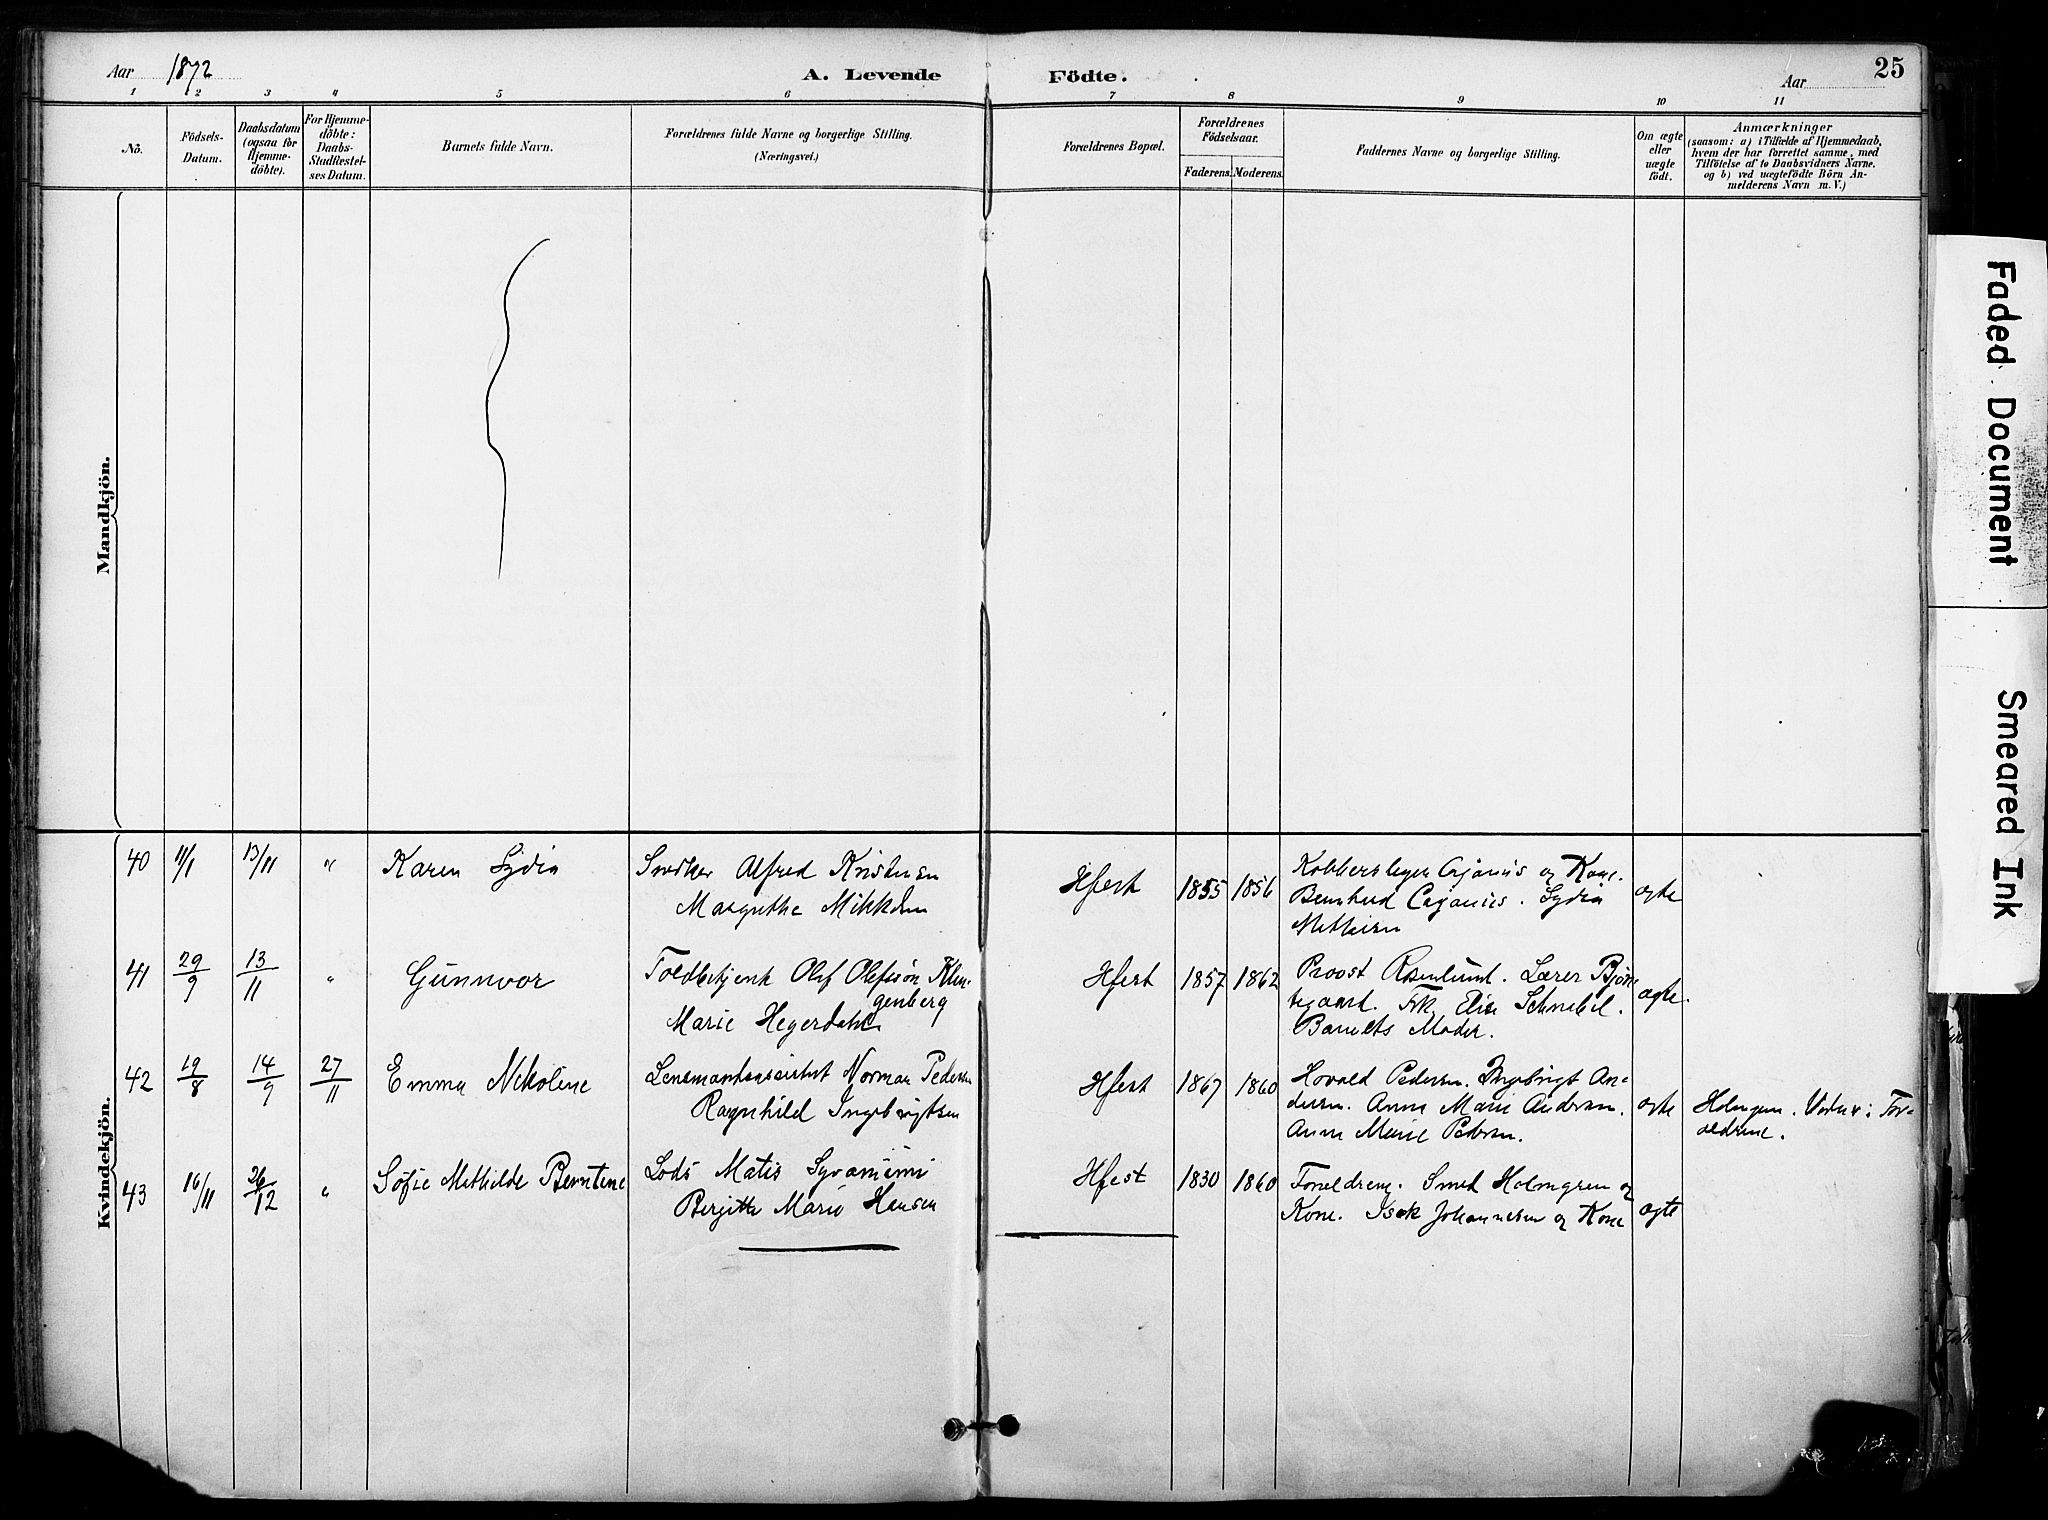 Aar 1892
A. Levende Födte.
Aar
25
1 2 3 4 5 6 7 8 9 10 11
No.
Födsels-
Datum.
Daabsdatum
(ogsaa for
Hjemme-
döbte).
For Hjemme-
döbte:
Daabs-
Stadfæstel-
ses Datum.
Barnets fulde Navn.
Forældrenes fulde Navne og borgerlige Stilling.
(Næringsvei.)
Forældrenes Bopæl.
Forældrenes
Födselsaar.
Faderens. Moderens.
Faddernes Navne og borgerlige Stilling.
Om ægte
eller
uægte
födt.
Anmærkninger
(saasom: a) i Tilfælde af Hjemmedaab,
hvem der har forrettet samme, med
Tilföielse af to Daabsvidners Navne.
og b) ved uægtefödte Börn An-
melderens Navn m. V.)
Mandkjön.
Kvindekjön.
40 11/1 13/11 " Karen Lydia
Snedker Alfred Kristensen
Margrethe Mikkelsen
Hfest 1855 1856
og Kone.
Lydia
Mathisen
ægte
41 29/9 13/11 " Gunnvor
Toldbetjent Olaf Olafssön Klin-
genberg
Marie Hegerdahl
Hfest 1857 1862
Provst Rosenlund. Lærer Bjön-
tegaard. Frk. Elise Schnebel.
Barnets Moder.
ægte.
42 19/8 14/9 27/11 Emma Nikoline
Lensmandsassistent Norman Pedersen
Ragnhild Ingebrigtsen
Hfest 1867 1860
Hovald Pedersen. Ingebrigt An-
dersen. Anne Marie Andersen.
Anne Marie Pedersen.
ægte
Holmgren. Vidner: For-
ældrene.
43 16/11 26/12 " Sofie Mathilde Berntine
Lods Matis
Birgitte Marie Hansen
Hfest 1830 1860
Forældrene. Smed Holmgren og
Kone. Isak Johannesen og Kone
ægte
Faded Document
Smeared Ink